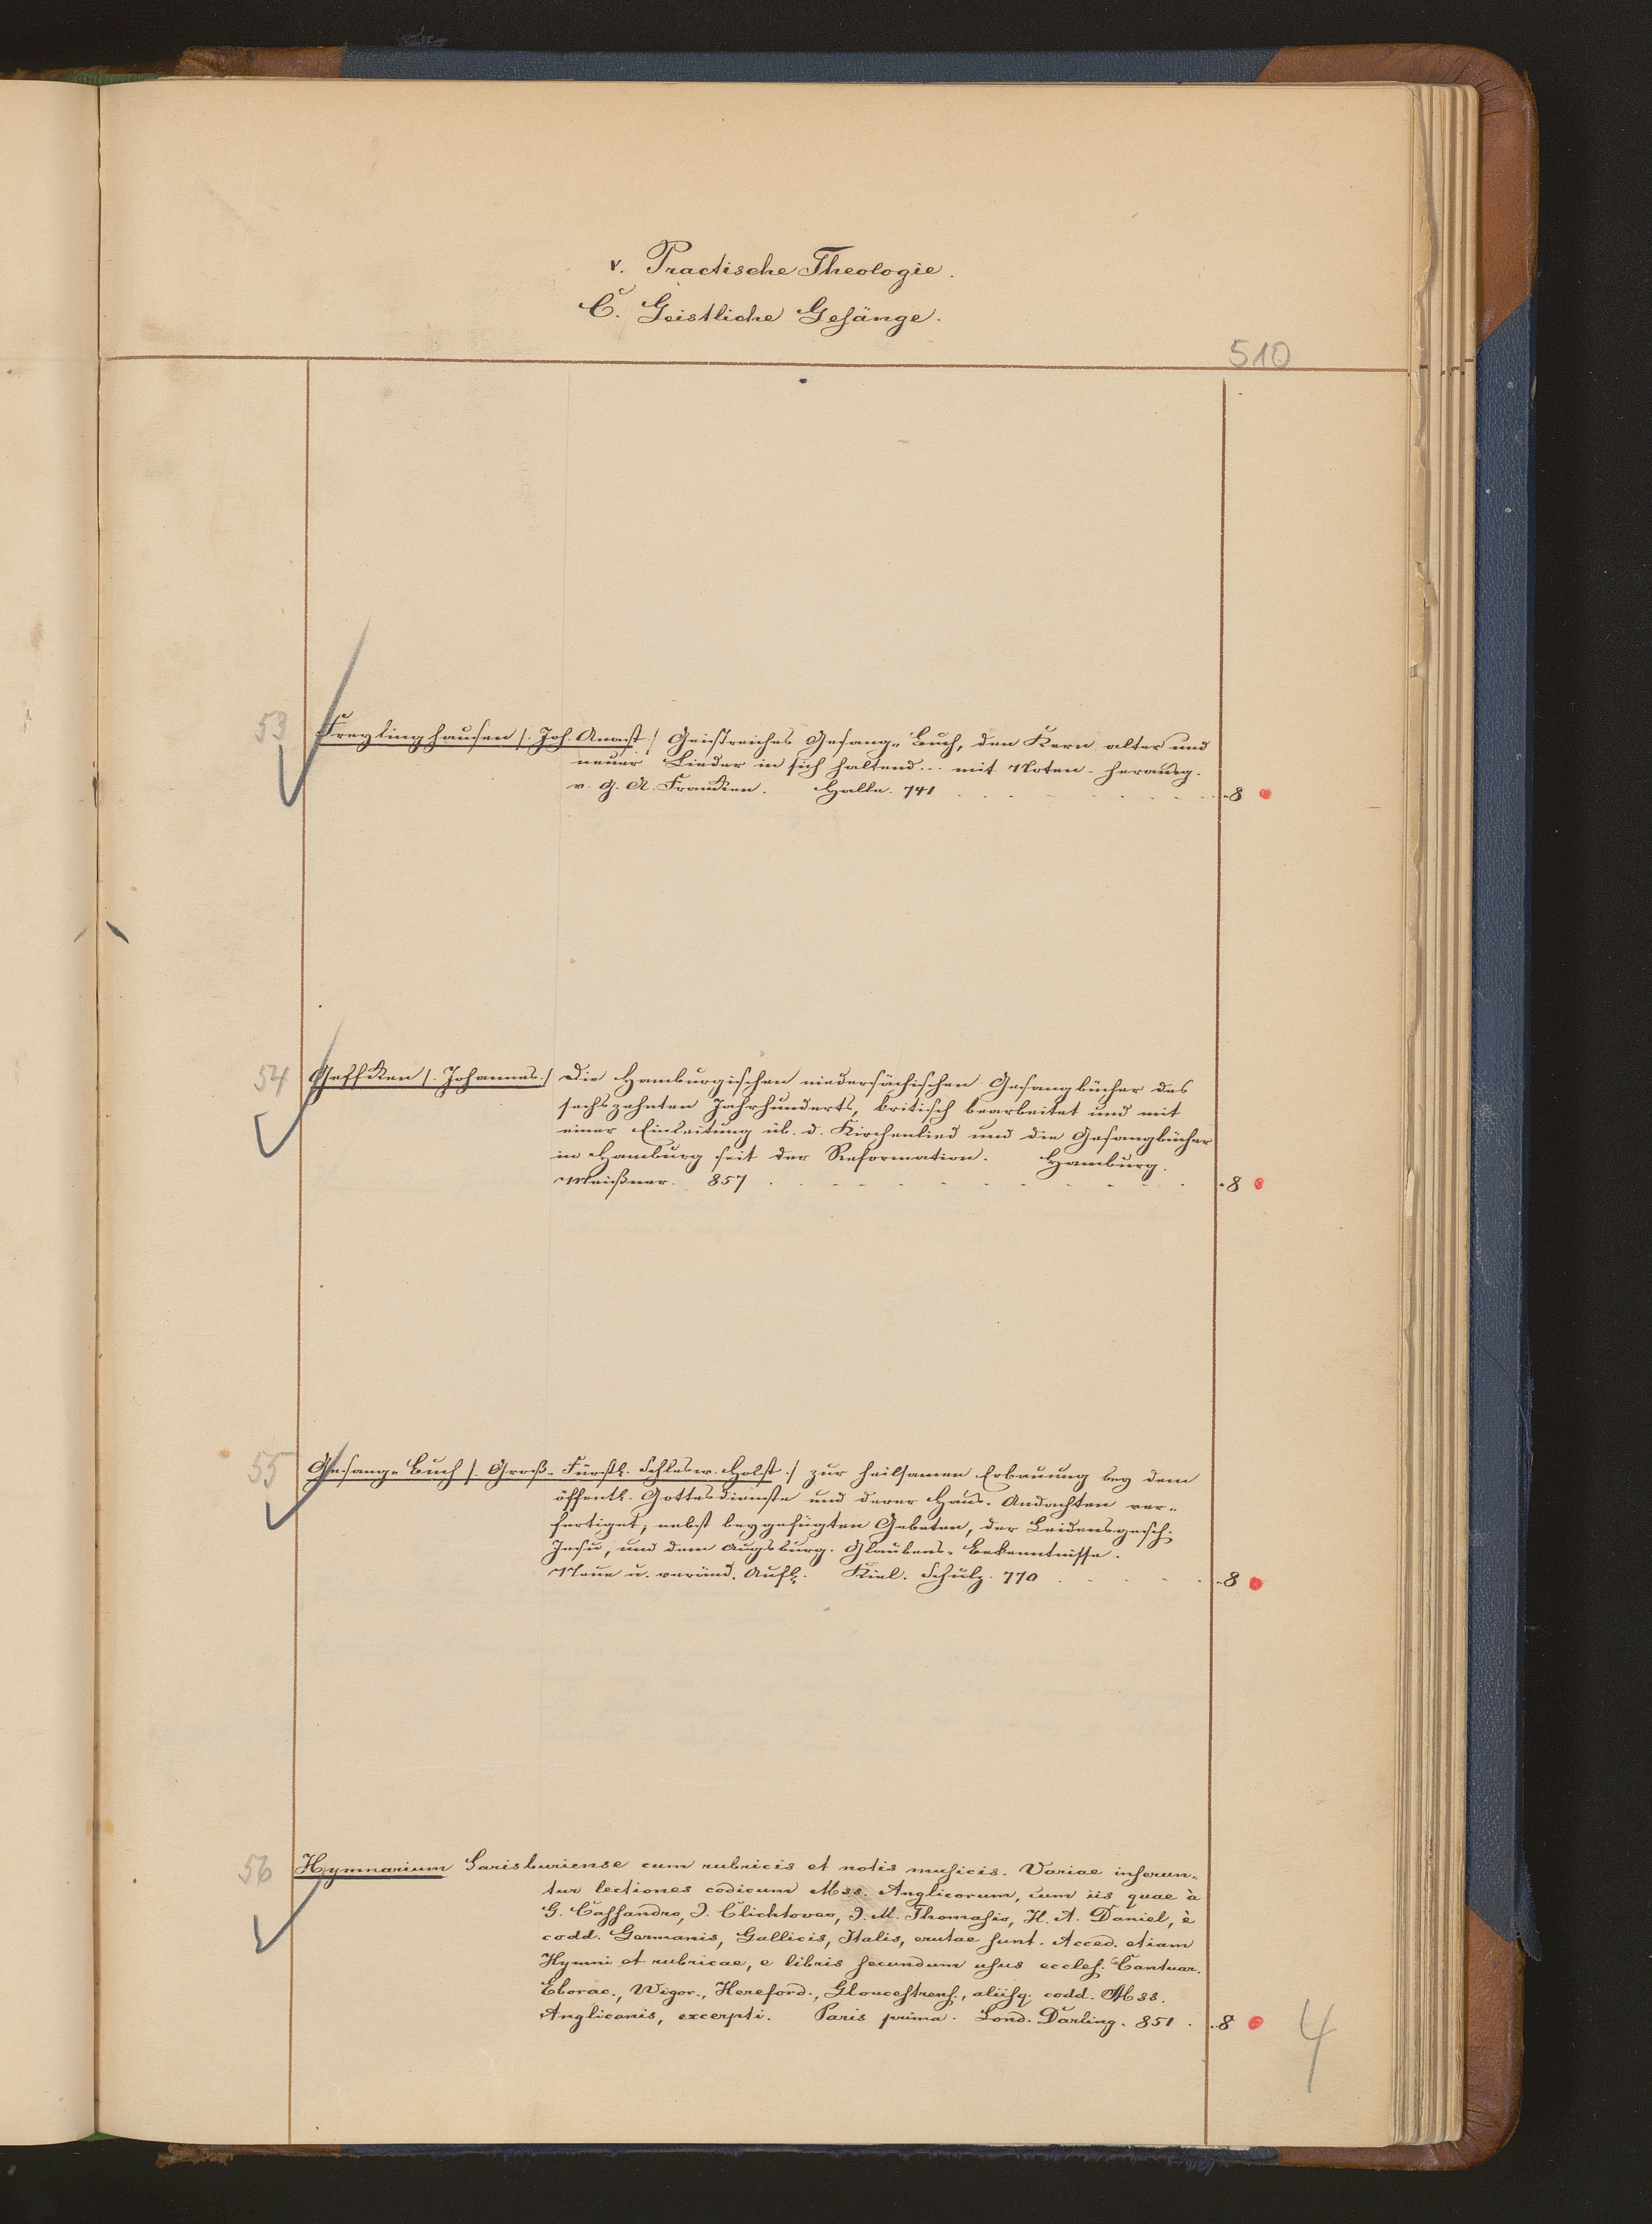 v. Practische Theologie.
C. Geistliche Gesänge.
510
53 Freylinghausen /: Joh. Anast :/ Geistreiches Gesang-Buch, den Kern alter und
neuer Lieder in sich haltend... mit Noten - herausg.
v. G. A. Francken. Halle. 741 . . . . . . . . . 8
54 Geffcken /: Johannes :/ Die Hamburgischen niedersächsischen Gesangbücher des
sechszehnten Jahrhunderts, kritisch bearbeitet und mit
einer Einleitung üb. d. Kirchenlied und die Gesangbücher
in Hamburg seit der Reformation. Hamburg.
Meißner. 857 . . . . . . . . . . 8
55 Gesang-Buch /: Groß-Fürstl. Schlesw. Holst :/ zur heilsamen Erbauung bey dem
öffentl. Gottesdienste und derer Haus-Andachten ver-
fertiget, nebst beygefügten Gebeten, der Leidensgesch.
Jesu, und dem Augsburg. Glaubens-Bekenntnisse.
Neue u. veränd. Aufl. Kiel. Schulz. 770 . . . . . 8
56 Hymnarium Sarisburiense cum rubricis et notis musicis. Variae inserun-
tur lectiones codicum Mss. Anglicorum, cum iis quae à
G. Cassandro, J. Clichtoveo, J. M. Thomasio, H. A. Daniel, è
codd. Germanis, Gallicis, Italis, erutae sunt. Acced. etiam
Hymni et rubricae, e libris secundum usus eccles. Cantuar.
Eborac., Wigor., Hereford., Gloucestrens., aliisq. codd. Mss.
Anglicanis, excerpti. Paris prima. Lond. Darling. 851 . . 8
4